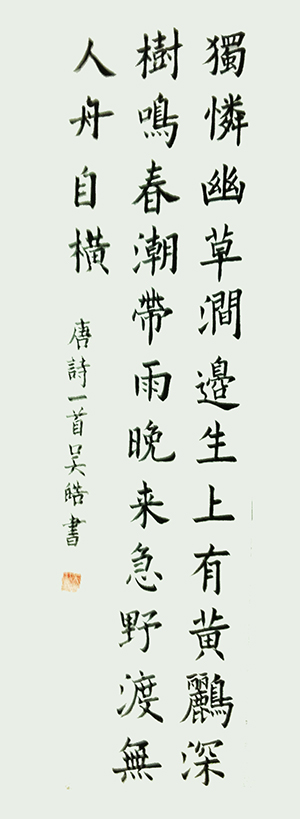 獨憐幽草澗邊生上有黃鸝深
樹鳴春潮帶雨晚来急野渡無
人舟自橫
唐詩一首吴皓書